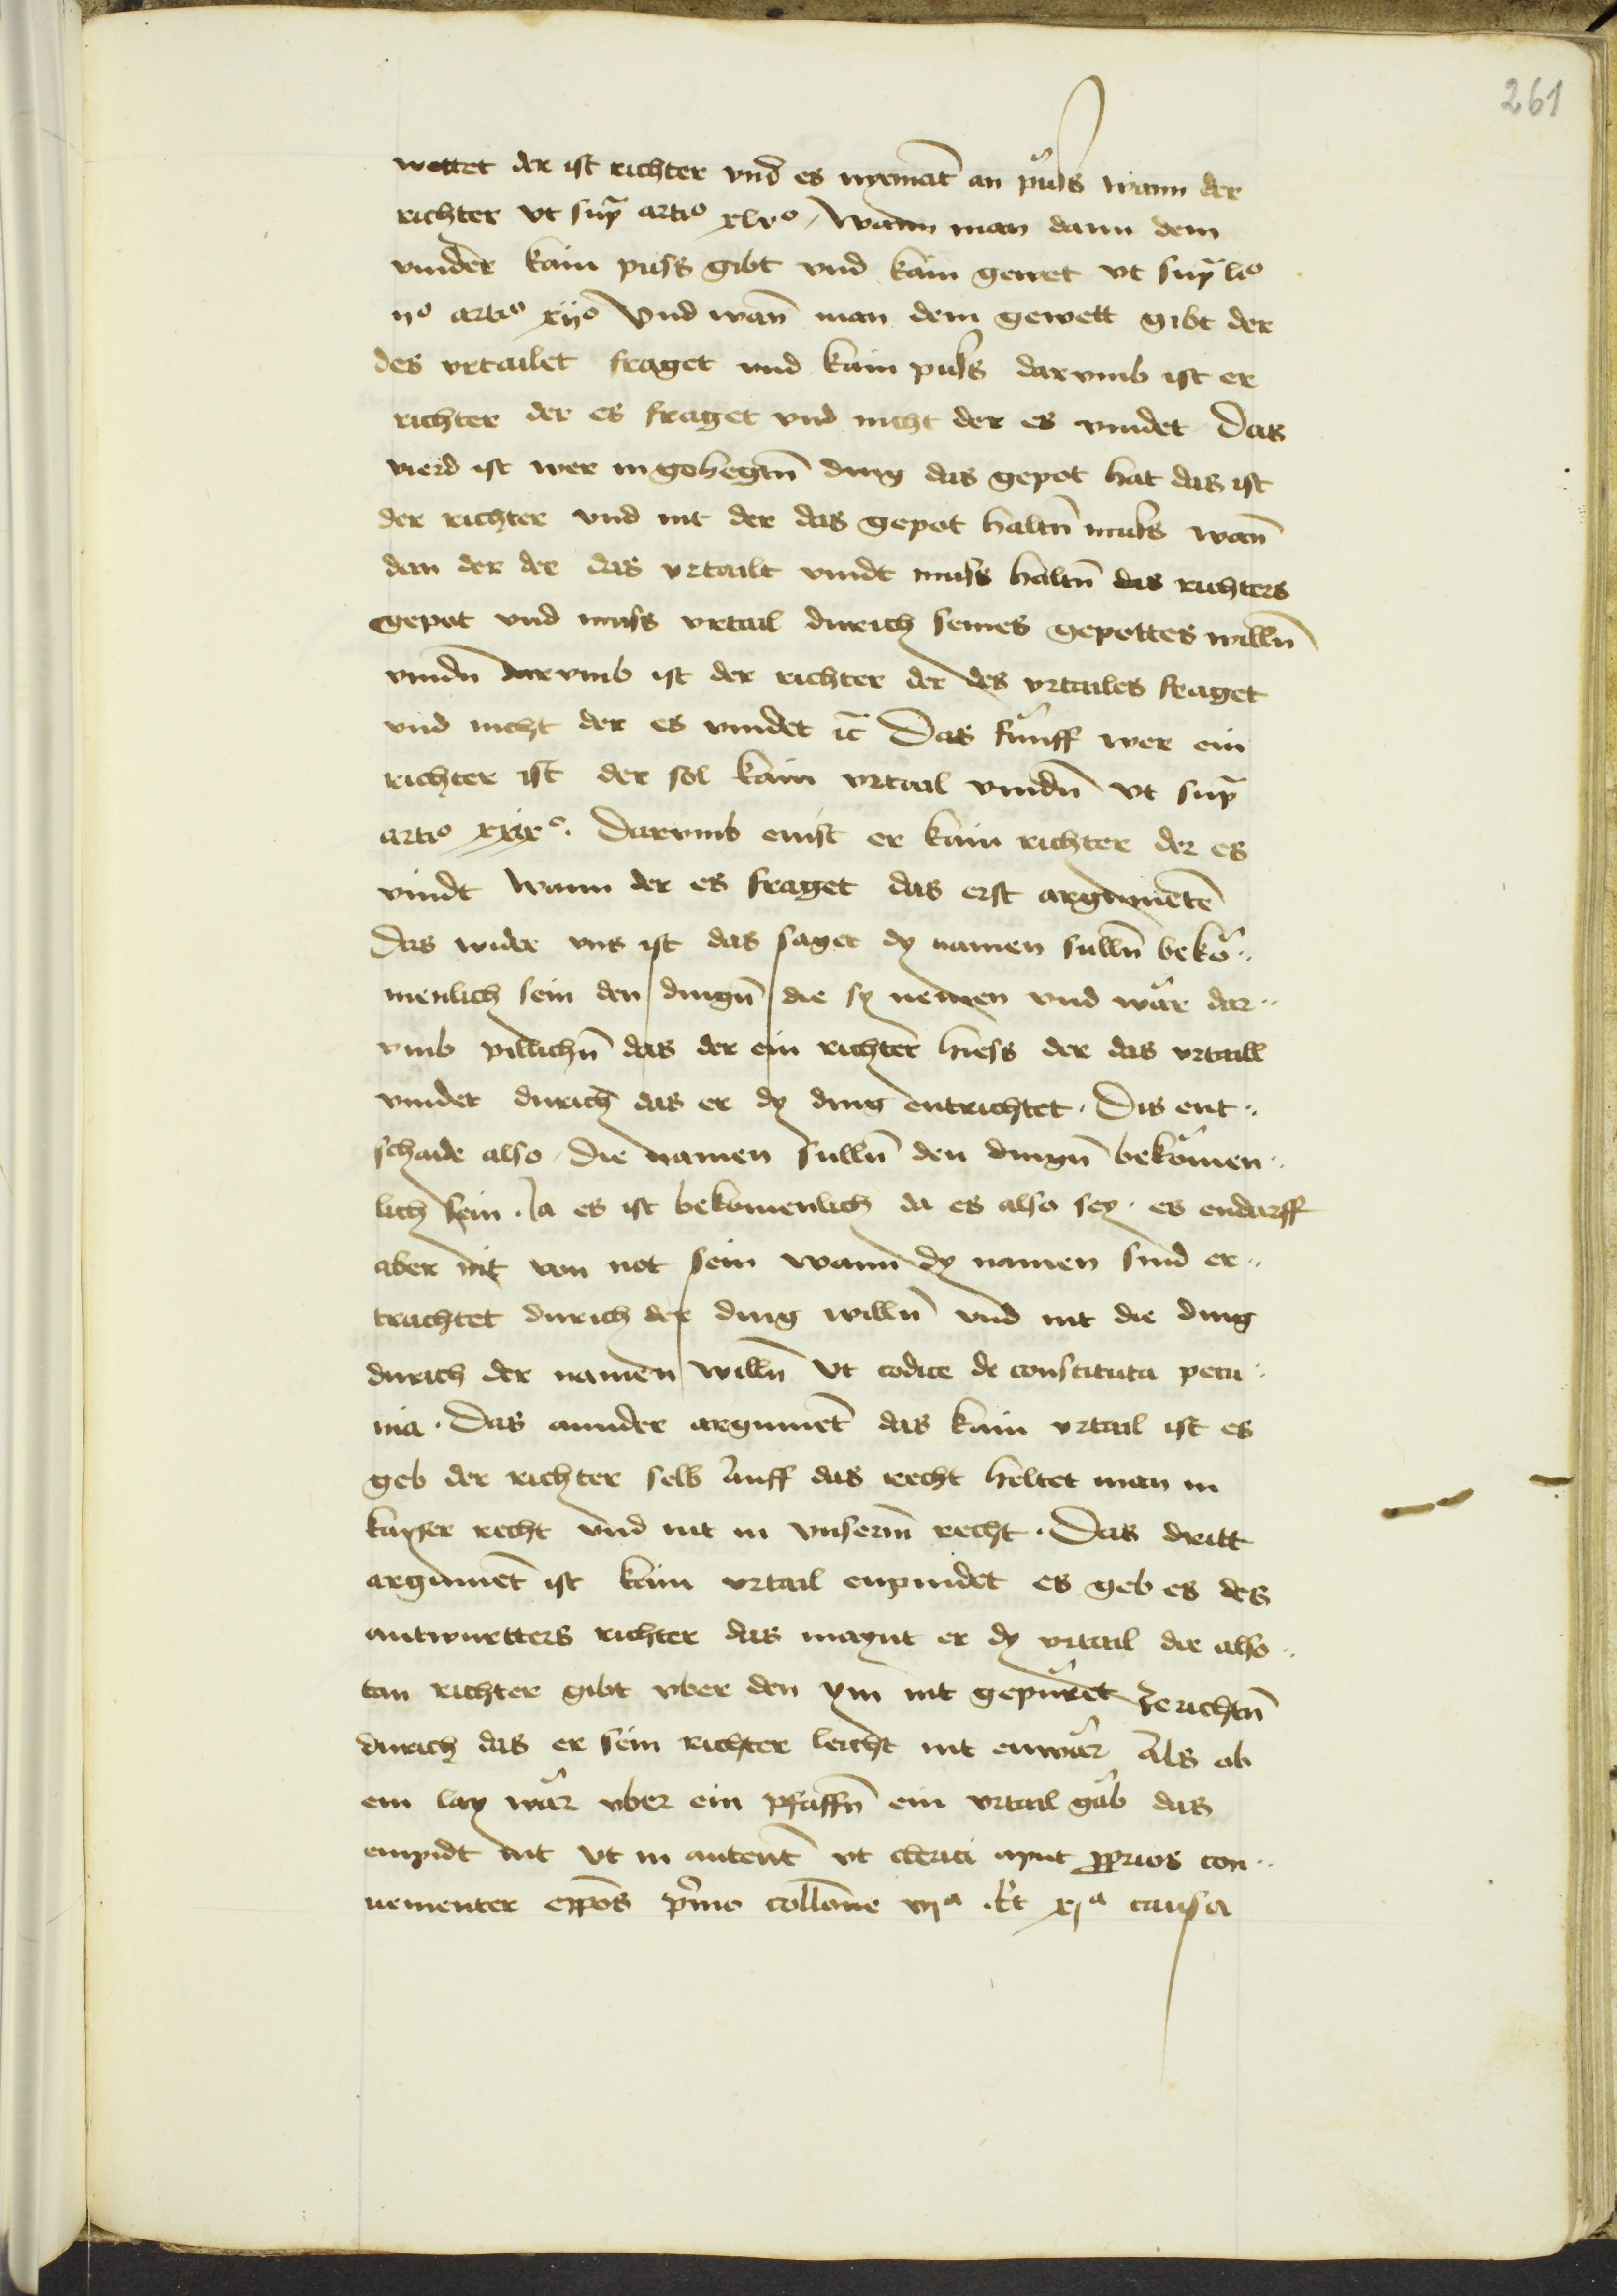 261
wettet der ist richter vnd es nyemāt an půss wann der
richter vt sup̄ artᵒ xlvᵒ / Wann man dann dem
vinder kain puss gibt vnd kain gewet vt sup̄ liᵒ
ijᵒ artᵒ xijᵒ Vnd wan̄ man dem gewett gibt der
des vrtailet fraget vnd kain puss darvmb ist er
richter der es fraget vnd nicht der es vindet Das
vierd ist wer in gehegtn̄ ding das gepot hat das ist
der richter vnd nit der das gepot haltn̄ muss wan̄
dan der der das vrtailt vindt muss haltn̄ das richters
gepot vnd muss vrtail durich seines gepottes willn̄
vindn̄ darvmb ist der richter der des vrtailes fraget
vnd nicht der es vindet ꝛc̄ Das fůnff wer ein
richter ist der sol kain vrtail vindn̄ vt sup̄
artᵒ xxixᵒ. Darvmb enist er kain richter der es
vindt wann der es fraget das erst argumētē
Das wider vns ist das saget dy namen sulln̄ bekō¨
menlich sein den dingn̄ die sy nennen vnd wår dar¨
vmb pillichn̄ das der ein richter hiess der das vrtaill
vindet durich das er dy ding entrichtet. Dis ent¨
schaide also / Die namen sulln̄ den dingn̄ bekömen¨
lich sein. Ja es ist bekomenlich da es also sey. es endarff
aber nit von not sein wann dy namen sind er¨
trachtet durich der ding willn̄ vnd nit die ding
durich der namen willn̄ Vt codice de constituta pecu¨
nia. Das annder argumēt das kain vrtail ist es
geb der richter selb Auff das recht heltet man in
kayser recht vnd nit in vnserm̄ recht. Das dritt
argumēt ist kain vrtail enpindet es geb es des
antwurtters richter das maynt er dy vrtail die also¨
tan richter gibt vber den ym nit gepůret ze richtn̄
durich das er sein richter leicht nit enwår Als ob
ein lay wår vber ein pfaffn̄ ein vrtail gåb das
enpidt nit Vt in autent̄ vt clerici aput ꝓprios con¨
uenienter ep̄pos p̄mo collōne vijᵃ Et xjᵃ causa